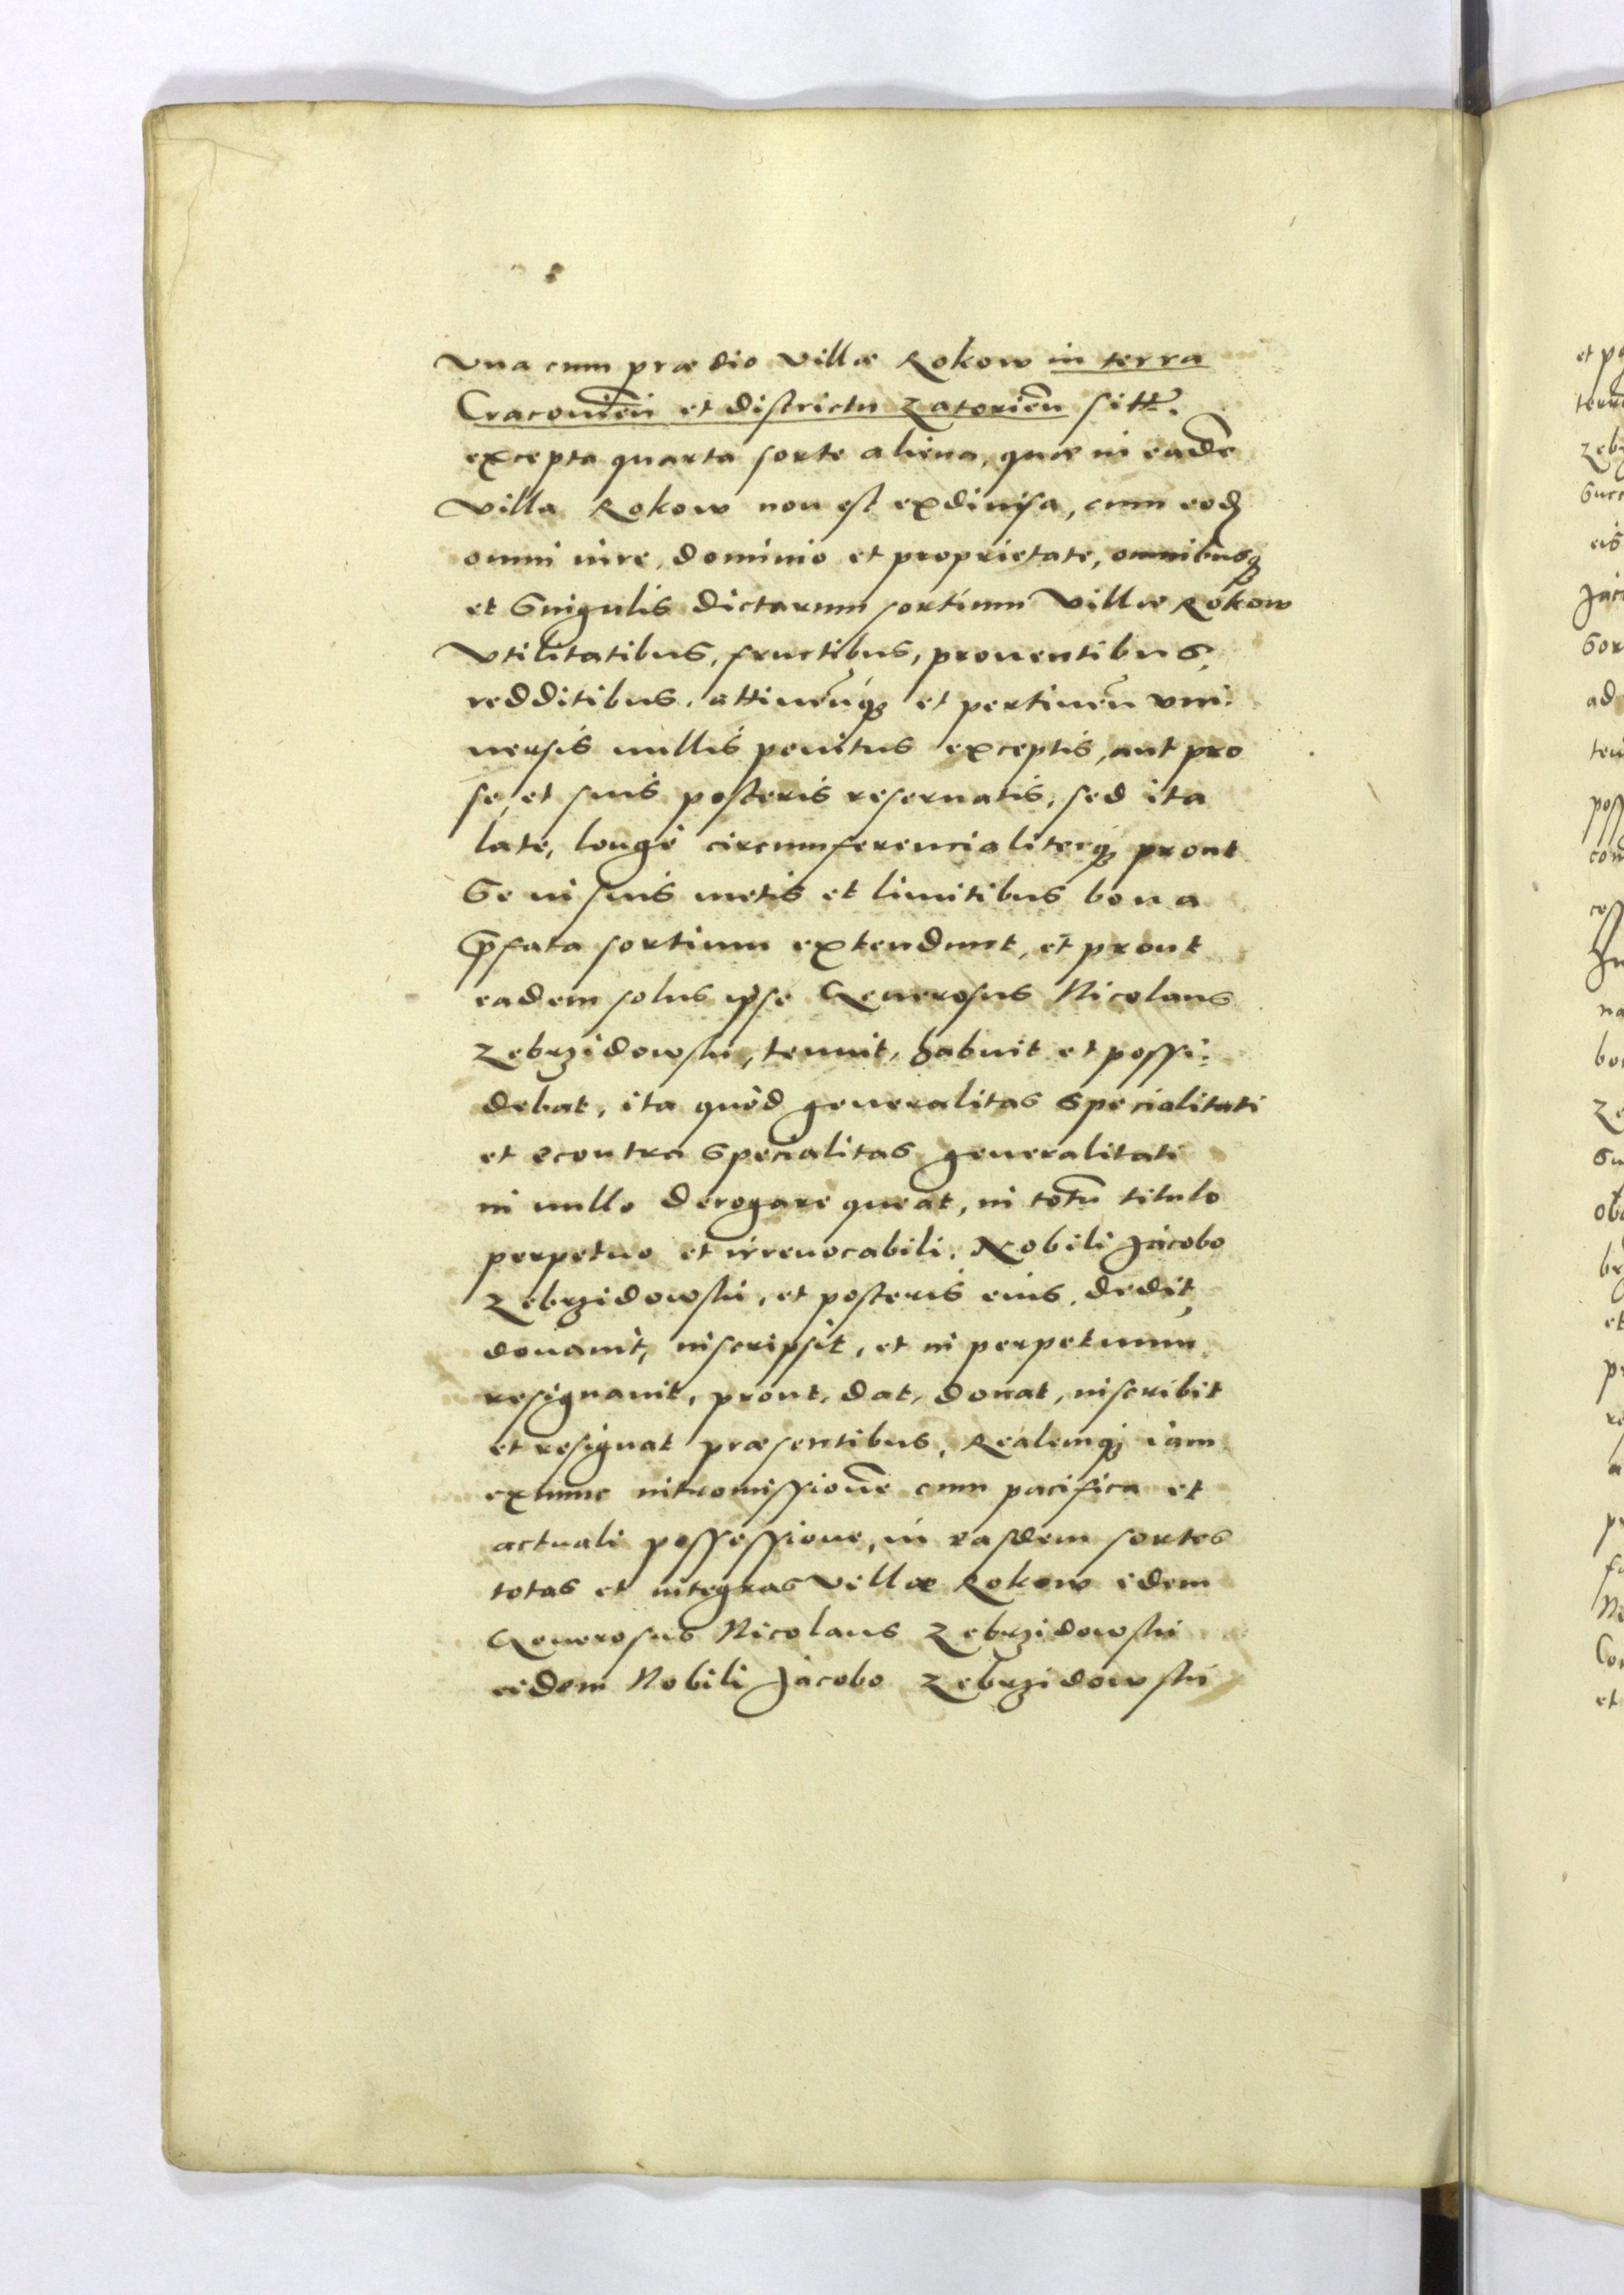 Vna cum prædio villæ Rokow in terra
Cracouien̄ et districtu Zatorien̄ sitt.
excepta quarta sorte aliena, quæ in eadē
villa Rokow non est exdiuisa, cum eod
omni iure, dominio et proprietate, omnibusq
et singulis dictarum sortium villæ Rokow
vtilitatibus, fructibus, prouentibus,
redditibus, attinen̄q et pertinen̄ vni:
uersis nullis penitus exceptis, aut pro
se, et suis posteris reseruatis, sed ita
late, longè circumferencialiterq prout
se in suis metis et limitibus bona
p̄fata sortium extendunt, et prout
eadem solus ipse Generosus Nicolaus
Zebrzidowski, tenuit, habuit et possi:
debat, ita quòd generalitas specialitati
et econtra specialitas generalitati
in nullo derogare queat, in totū titulo
perpetuo et irreuocabili. Nobili Jacobo
Zebrzidowski, et posteris eius, dedit,
donauit, inscripsit, et in perpetuum
resignauit, prout, dat, donat, inscribit
et resignat præsentibus, Realemq iam
exnunc intromissionē cum pacifica et
actuali possessione, in easdem sortes
totas et integras villæ Rokow idem
Generosus Nicolaus Zebrzidowski
eidem Nobili Jacobo Zebrzidowski